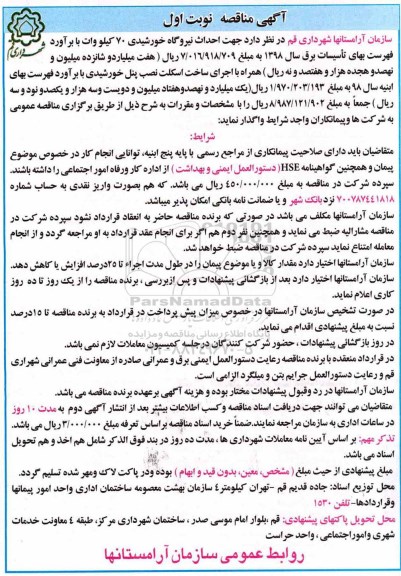 آگهی مناقصه نوبت اول
سازمان آرامستانها شهرداری قم در نظر دارد جهت احداث نیروگاه خورشیدی ۷۰ کیلو وات با برآورد
فهرست بهای تأسیسات برق سال ۱۳۹۸ به مبلغ ۷/۰۱۶/۹۱۸/۷۰۹ ریال ( هفت میلیاردو شانزده میلیون و
نهصدو هجده هزار و هفتصد و نه ریال ) همراه با اجرای ساخت اسکلت نصب پنل خورشیدی با برآورد فهرست بهای
ابنیه سال ۹۸ به مبلغ ۱/۹۷۰/۲۰۳/۱۹۳ ریال(یک میلیارد و نهصدوهفتاد میلیون و دویست وسه هزار و یکصدو نود و سه
ریال ) جمعاً به مبلغ ۸/۹۸۷/۱۲۱/۹۰۲ ریال را با مشخصات و مقررات به شرح ذیل از طریق برگزاری مناقصه عمومی
به شرکت ها وپیمانکاران واجد شرایط واگذار نماید:
شرایط:
متقاضیان باید دارای صلاحیت پیمانکاری از مراجع رسمی با پایه پنج ابنیه، توانایی انجام کار در خصوص موضوع
پیمان و همچنین گواهینامه HSE( دستورالعمل ایمنی و بهداشت ) از اداره کار ورفاه امور اجتماعی را داشته باشند.
سپرده شرکت در مناقصه به مبلغ ۴۵۰/۰۰۰/۰۰۰ ریال می باشد. که هم بصورت واریز نقدی به حساب شماره
۷۰۰۷۸۷۴۴۱۸۱۸ نزدبانک شهر و یا ضمانت نامه بانکی امکان پذیر میباشد.
سازمان آرامستانها مکلف می باشد در صورتی که برنده مناقصه حاضر به انعقاد قرارداد نشود سپرده شرکت در
مناقصه مشارالیه ضبط می نماید و همچنین نفر دوم هم اگر برای انجام عقد قرارداد به او مراجعه گردد و از انجام
معامله امتناع نماید سپرده شرکت در مناقصه ضبط خواهد شد.
سازمان آرامستانها اختیار دارد مقدار کالا و یا موضوع پیمان را در طول مدت اجراء تا ۲۵درصد افزایش یا کاهش دهد.
سازمان آرامستانها اختیار دارد بعد از بازگشائی پیشنهادات و پس ازبررسی ، برنده مناقصه را از یک روز تا ده روز
کاری اعلام نماید.
در صورت تشخیص سازمان آرامستانها در خصوص میزان پیش پرداخت در قرارداد به برنده مناقصه تا ۱۵درصد
نسبت به مبلغ پیشنهادی اقدام می نماید.
در روز بازگشائی پیشنهادات ، حضور شرکت کنندگان درجلسه کمیسیون معاملات لازم نمی باشد.
در قرارداد منعقده با برنده مناقصه رعایت دستورالعمل ایمنی برق و عمرانی صادره از معاونت فنی عمرانی شهرداری
قم و رعایت دستورالعمل جرایم بتن و میلگرد الزامی است.
سازمان آرامستانها در رد وقبول پیشنهادات مختار بوده و هزینه آگهی برعهده برنده مناقصه می باشد.
متقاضیان می توانند جهت دریافت اسناد مناقصه وکسب اطلاعات بیشتر بعد از انتشار آگهی دوم به مدت ۱۰ روز
در ساعات اداری به سازمان مراجعه نمایند.ضمناً خرید اسناد مناقصه براساس تعرفه مبلغ ۳/۰۰۰/۰۰۰ ریال می باشد.
تذکر مهم: بر اساس آیین نامه معاملات شهرداری ها ، مدت ده روز در بند فوق الذکر شامل هم اخذ و هم تحویل
اسناد می باشد.
مبلغ پیشنهادی از حیث مبلغ ( مشخص، معین، بدون قید و ابهام ) بوده ودر پاکت لاک ومهر شده تسلیم گردد.
محل توزیع اسناد: جاده قدیم قم -تهران کیلومتر۴ سازمان بهشت معصومه ساختمان اداری واحد امور پیمانها
وقراردادها-تلفن ۱۵۳۰
محل تحویل پاکتهای پیشنهادی: قم ،بلوار امام موسی صدر ، ساختمان شهرداری مرکز، طبقه ۴ معاونت خدمات
شهری وامور اجتماعی ، واحد حراست
روابط عمومی سازمان آرامستانها